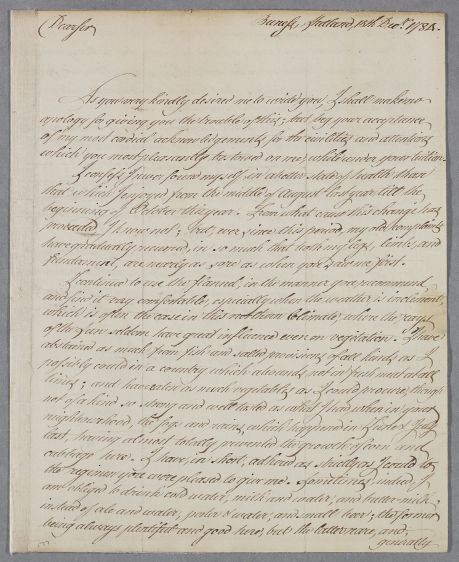 Dear Sir
Buness, Shetland, 18th Decr. 1784.
As you very kindly desired me to write you, I shall make no
apology for giving you the trouble of this; but beg your acceptance
of my most cordial acknowledgements for the civilities and attentions
which you most pleasantly bestowed on me, while under your tuition.
I confess I never found myself in a better state of health than
that which I enjoyed from the middle of August last year till the
beginning of October this year. From what cause this change has
proceeded I know not; but, ever since this period, my old complaints
have gradually recurred, in so much that both my legs, limbs, and
fundament, are nearly as sore as when you saw me first.
I continue to use the flannel, in the manner you recommend,
and find it very comfortable, especially when the weather is inclement,
which is often the case in this northern Climate, where the rays
of the sun seldom have great influence even on vegetation. I have
abstained as much from fish and salted provisions of all kinds as I
possibly could in a country which abounds not in fresh meat of all
kinds; and have eaten as much vegetables as I could procure, though
not of a kind so strong and well tasted as what I had when in your
neighbourhood, the fogs and rains, which happened in June & July
last, having almost totally prevented the growth of corn and
cabbage here. I have, in short, adhered as strictly as I could to
the regimen you were pleased to give me. Sometimes, indeed, I
am obliged to drink cold water, milk and water, and butter-milk,
instead of ale and water, porter & water, and small beer; the former
being always plentiful and good here, but the latter rare, and,
generally